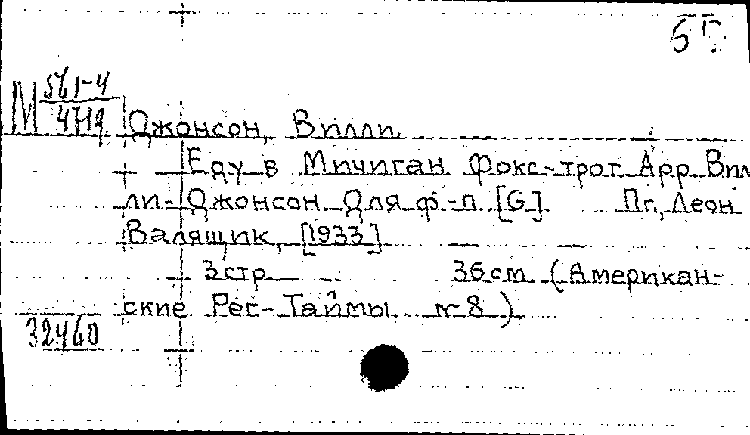 М 561-4
4719
Джонсон, Вилли
Еду в Мичиган Фокс-трот Арр Вил
ли-Джонсон Для ф-п [G] Пг, Леон
Валящик, [1933]
3 стр 36 см (Американ-
ские Рег-Таймы № 8)
32460